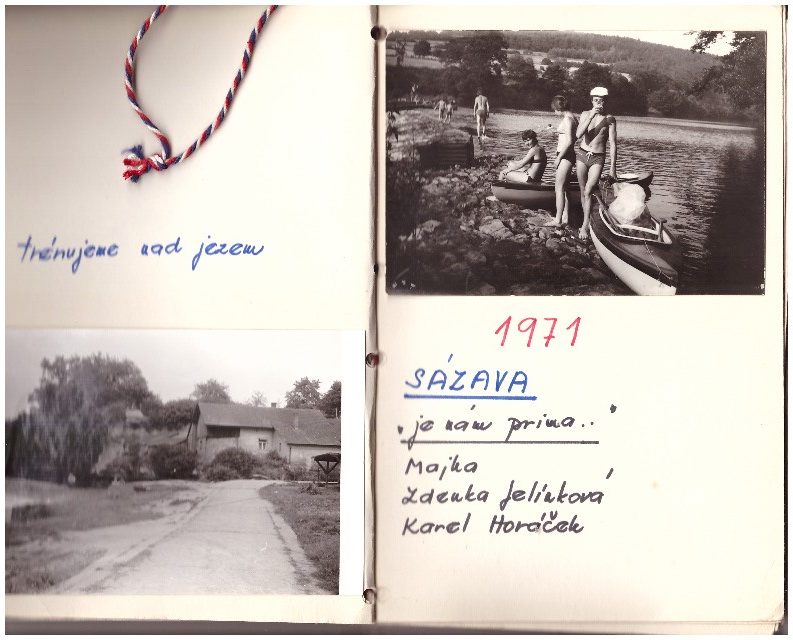 trénujeme nad jezem
1971
SÁZAVA
"je nám prima.."
Majka
Zdenka Jelínková
Karel Horáček